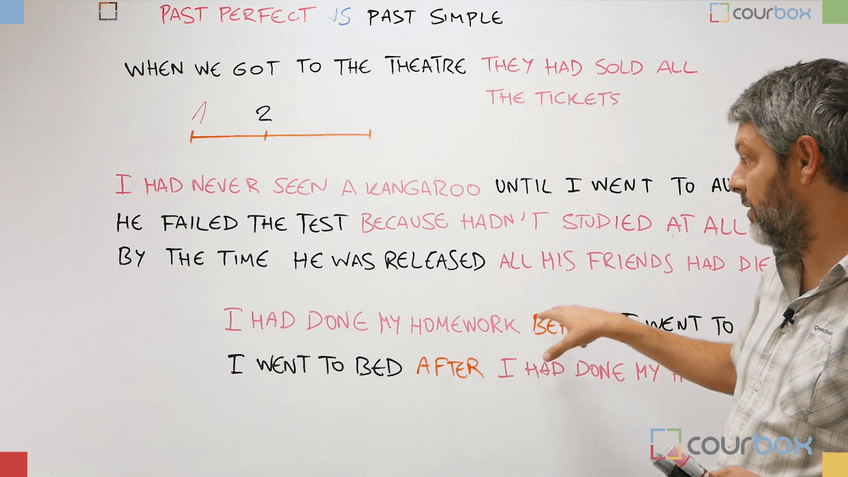 PAST PERFECT VS PAST SIMPLE
courbox
WHEN WE GOT TO THE THEATRE THEY HAD SOLD ALL
THE TICKETS
1 2
I HAD NEVER SEEN A KANGAROO UNTIL I WENT TO
HE FAILED THE TEST BECAUSE HADN'T STUDIED AT ALL
BY THE TIME HE WAS RELEASED ALL HIS FRIENDS HAD
I HAD DONE MY HOMEWORK I WENT TO
I WENT TO BED AFTER I HAD DONE MY
courbox